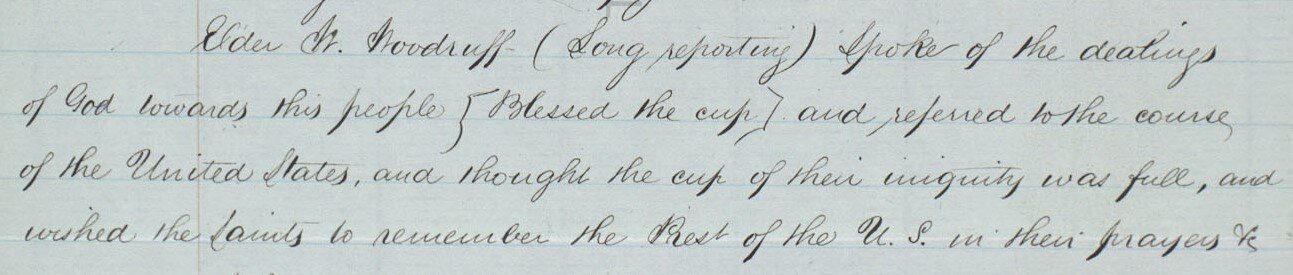 Elder W. Woodruff (Long reporting) spoke of the dealings
of God towards this people {Blessed the cup} and referred to the course
of the United States, and thought the cup of their iniquity was full, and
wished the Saints to remember the Prest of the U. S. in their prayers &c